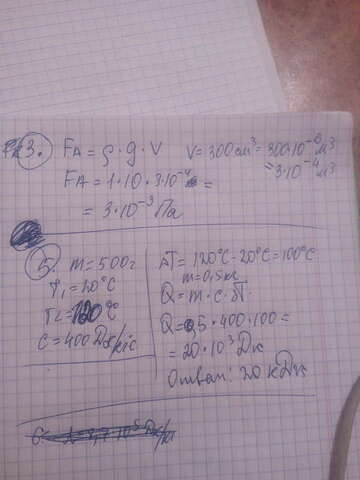 3. FA = ρ · g · V V = 300 см³ = 300·10⁻⁶ м³
= 3·10⁻⁴ м³
FA = 1 · 10 · 3·10⁻⁴ =
= 3·10⁻³ Па
5. m = 500г
T₁ = 20°C
T₂ = 120°C
C = 400 Дж/кг
ΔT = 120°C - 20°C = 100°C
m = 0,5 кг
Q = m · c · ΔT
Q = 0,5 · 400 · 100 =
= 20·10³ Дж
Ответ: 20 кДж
6.